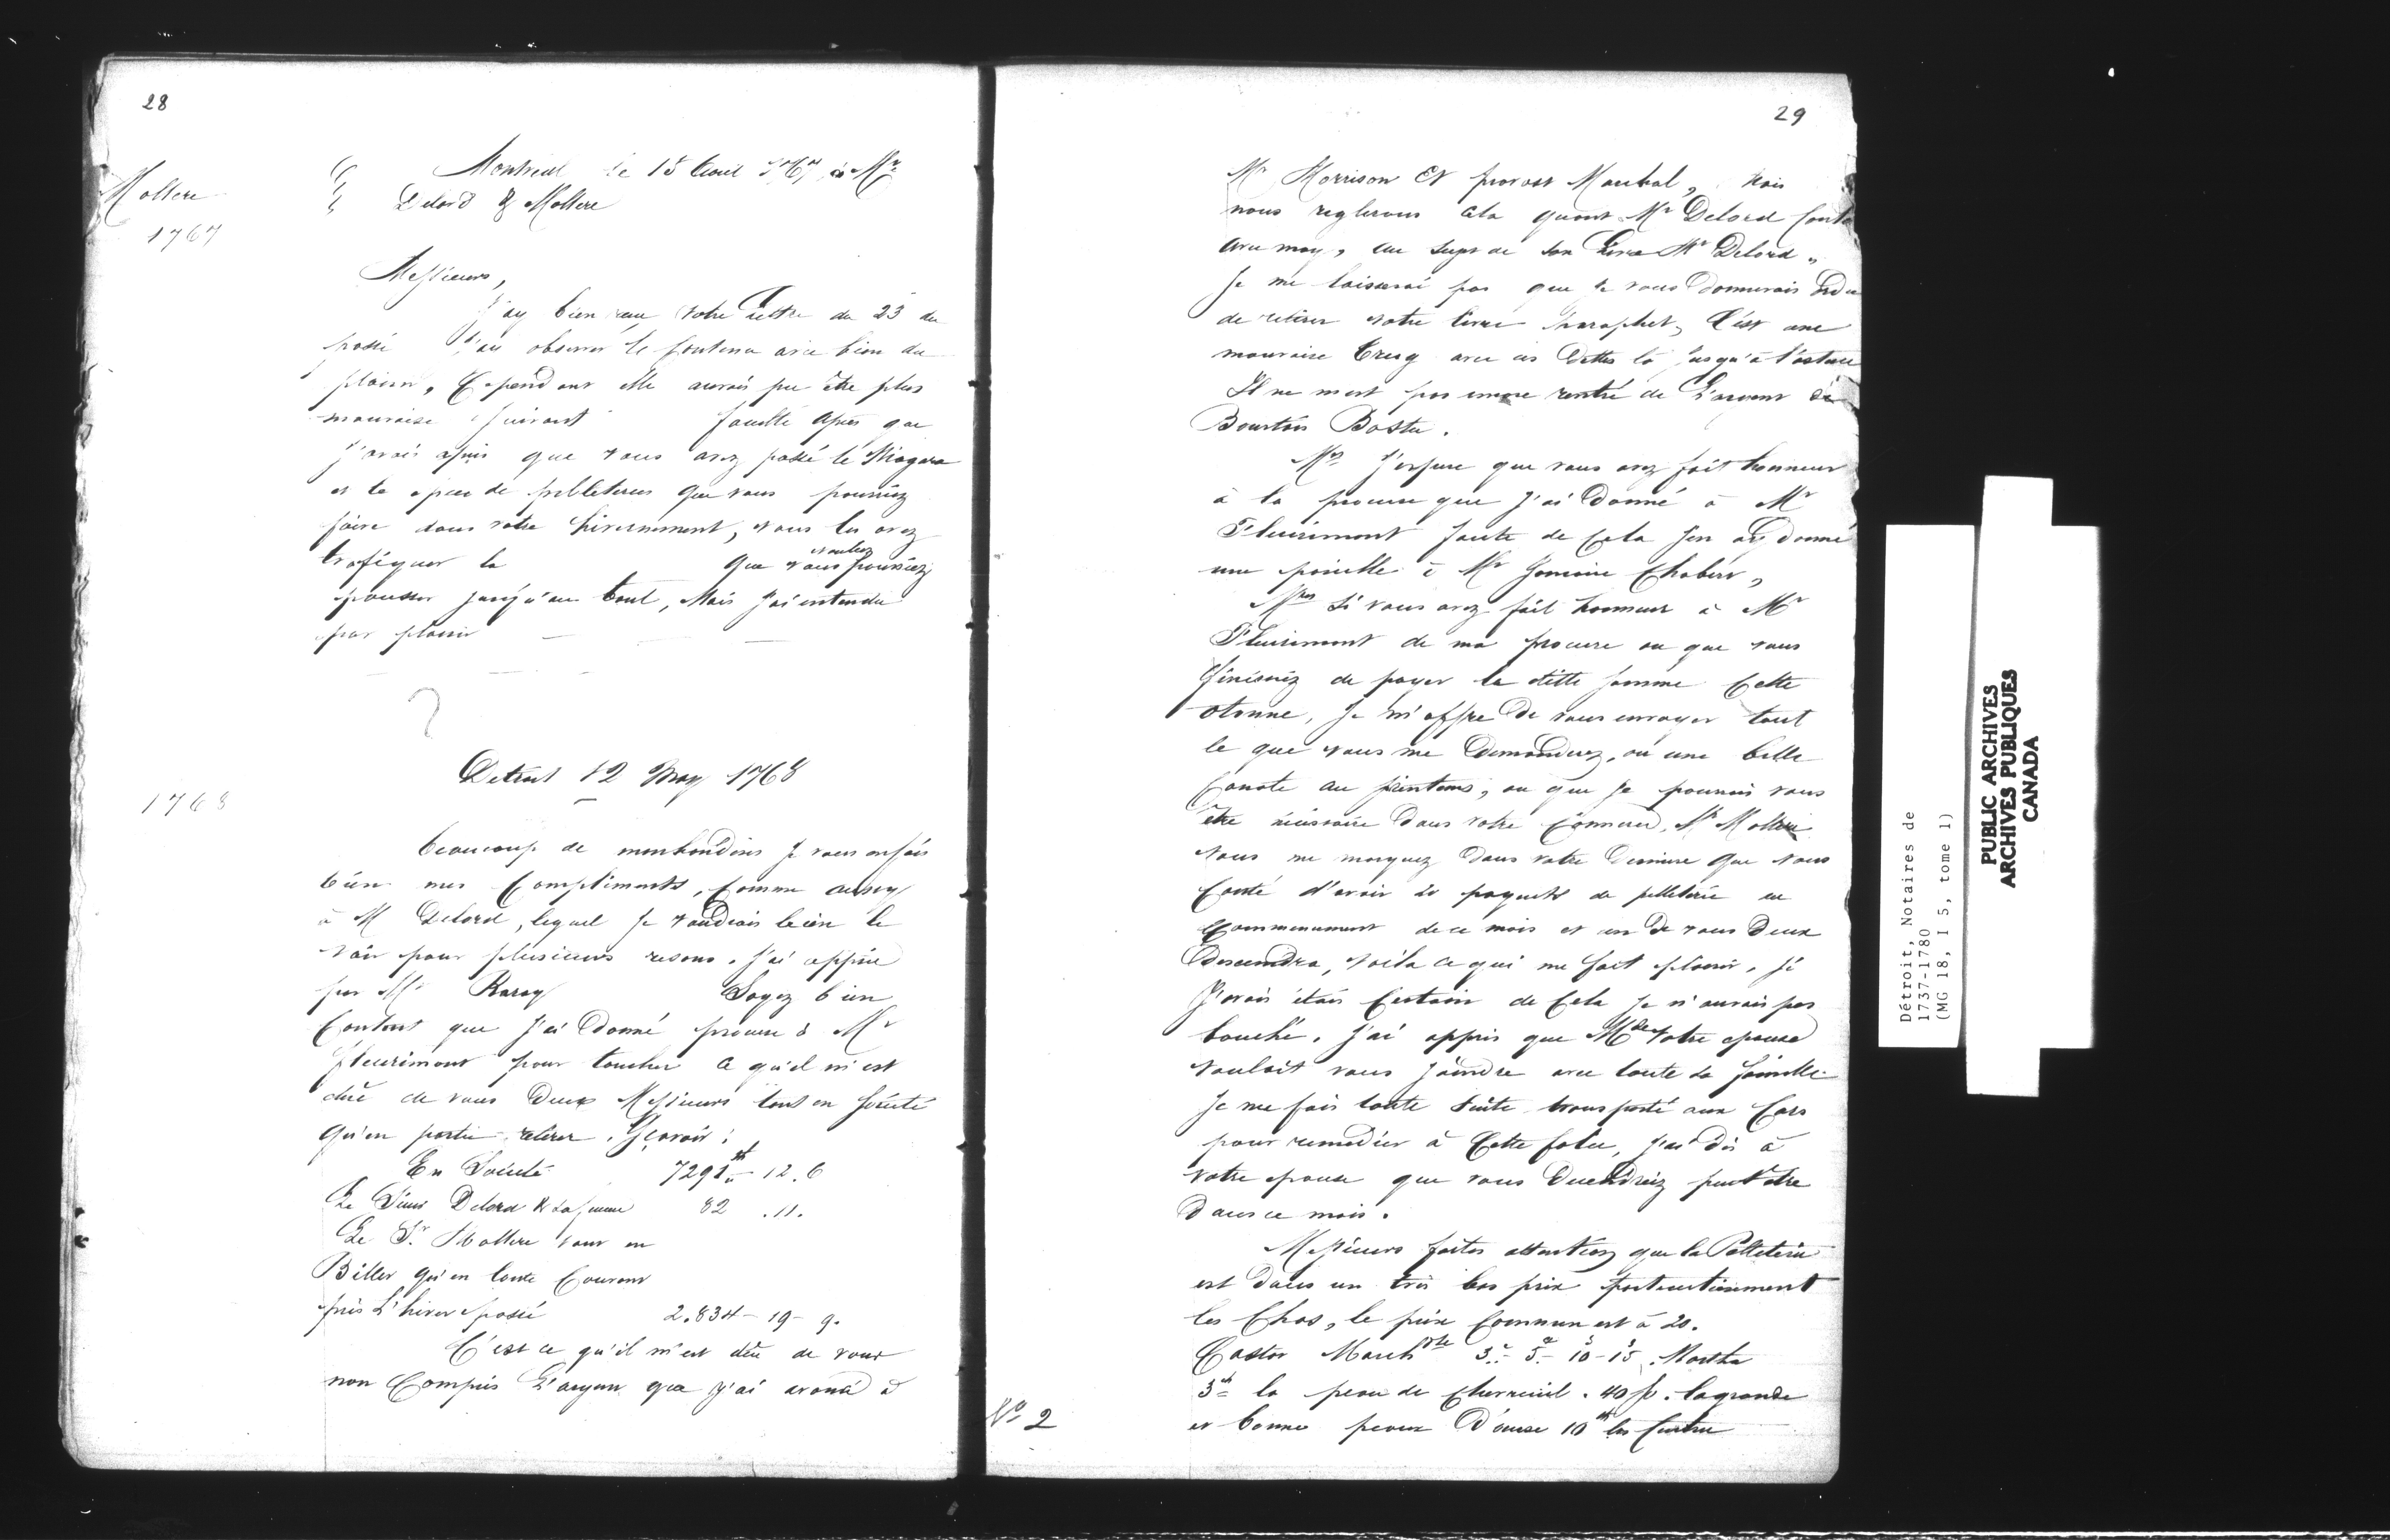 28
Mollere
1767
Montreal le 15 Avril 1767, à Mrs
Delord & Mollere
Messieurs,
J'ay bien reçu votre Lettre du 23 du
passé J'ai observer le Contenu avec bien du
plaisir, Cependant elle aurais pu être plus
mauvaise suivant faculté après que
j'avais apris que vous avez passé le Niagara
et le apeu de pelleteries que vous pourriez
faire dans votre hivernement, vous les avez
trafiquer la que vous pourriez
vouliez
pousser jusqu'au bout, Mais j'ai entendu
par plaisir
?
Detroit 12 May 1768
1768
beaucoup de je vous en fais
bien mes Compliments, Comme aussy
à M Delord, lequel je voudrais bien le
voir pour plusieurs resons. j'ai appris
par Mr Raroy Soyez bien
Content que j'ai Donné procure à Mr
fleurimont pour toucher ce qu'il m'est
dûe de vous Deux Messieurs tout en société
qu'en partie retirer. Sçavoir:
En Société 7291tt 12. 6
Le Sieur Delord & sa femme 82 . 11.
Le Sr Mollere tant en
Billet qu'en Conte Courant
pris L'hiver passé 2.834 - 19 - 9.
C'est ce qu'il m'est dûe de vous
non Compris L'argent que j'ai avancé à
29
Mr Morrison Et provost Marchal, Mais
nous reglerons Cela quant Mr Delord
avec moy, au sujet de son Livre Mr Delord,
Je ne laisserai pas que je vous Donnerais
de retirer votre livre C'est une
mauvaise avec ces Dettes là jusqu'à
Il ne m'est pas encore rentré de L'argent de
Bourtois Baste.
Mrs J'espere que vous avez fait honneur
à la procure que J'ai Donné à Mr
Fleurimont faute de Cela J'en ay donné
une pareille à Mr Joncaire Chabert,
Mrs si vous avez fait honneur à Mr
Fleurimont de ma procure ou que vous
finissiez de payer la ditte somme Cette
otonne, Je m'offre De vous envoyer tout
le que vous me Demanderez, ou une belle
Canote au printems, ou que je pourrais vous
être nécessaire Dans votre Commerce, Mr Mollere
vous me marquez Dans votre Derniere que vous
Conté d'avoir 20 paquets de pelleterie au
Commencement de ce mois et un De vous Deux
Descendra, voila ce qui me fait plaisir, si
J'avais étais Certain de Cela Je n'aurais pas
touché. j'ai appris que Mde votre epouse
voulait vous joindre avec toute sa famille
Je me fais toute suite transporté aux Cars
pour remedier à Cette folie, j'ai dis à
votre epouse que vous Decendreiz peut être
Dans ce mois.
Messieurs faites attention que la Pelleterie
est Dans un très bas prix particulierement
les Chas, le prix Commun est à 20.
Castor Marchde 3tt 5s 10 - 15. Martre
3tt la peau de Chevreuil. 40 s. la grande
et bonne peaux D'ourse 10tt les
No 2
Détroit, Notaires de
1737-1780
(MG 18, I 5, tome 1)
PUBLIC ARCHIVES
ARCHIVES PUBLIQUES
CANADA